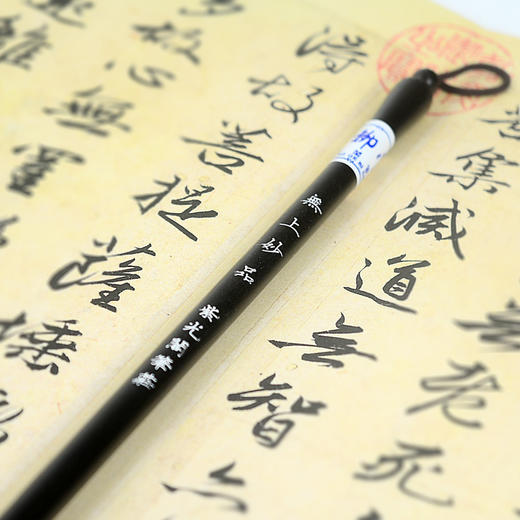 老死
集滅道无智
得故菩提薩埵
故心無罣
無上妙品
紫光閣筆莊